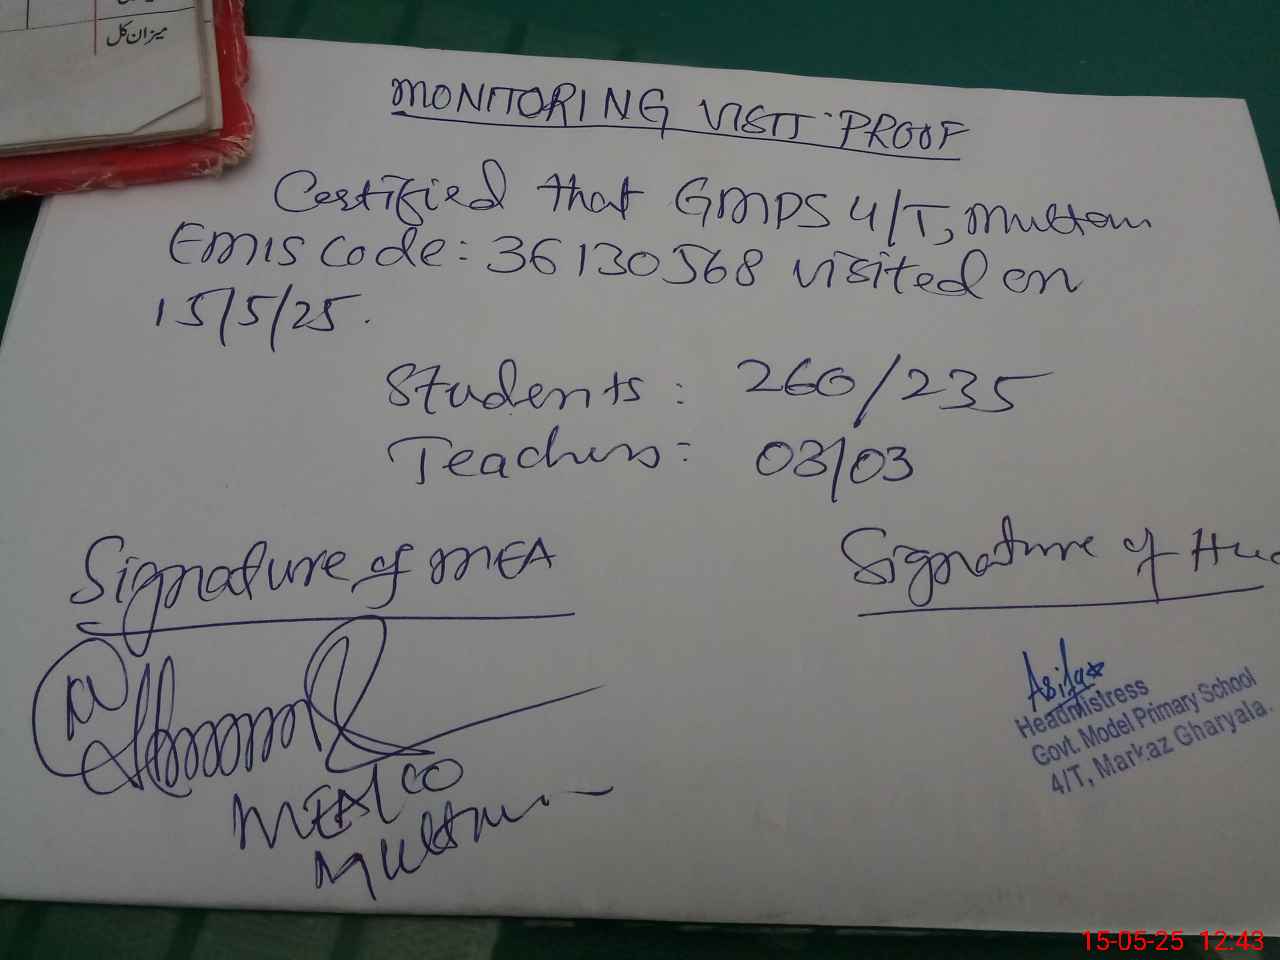 میزان کل
MONITORING VISIT PROOF
Certified that GMPS 4/T, Multan
EMIS Code: 36130568 visited on
15/5/25.
Students: 260/235
Teachers: 03/03
Signature of MEA
Signature of
MEA/CO
Multan
Asifa
Headmistress
Govt. Model Primary School
4/T, Markaz Gharyala.
15-05-25 12:43